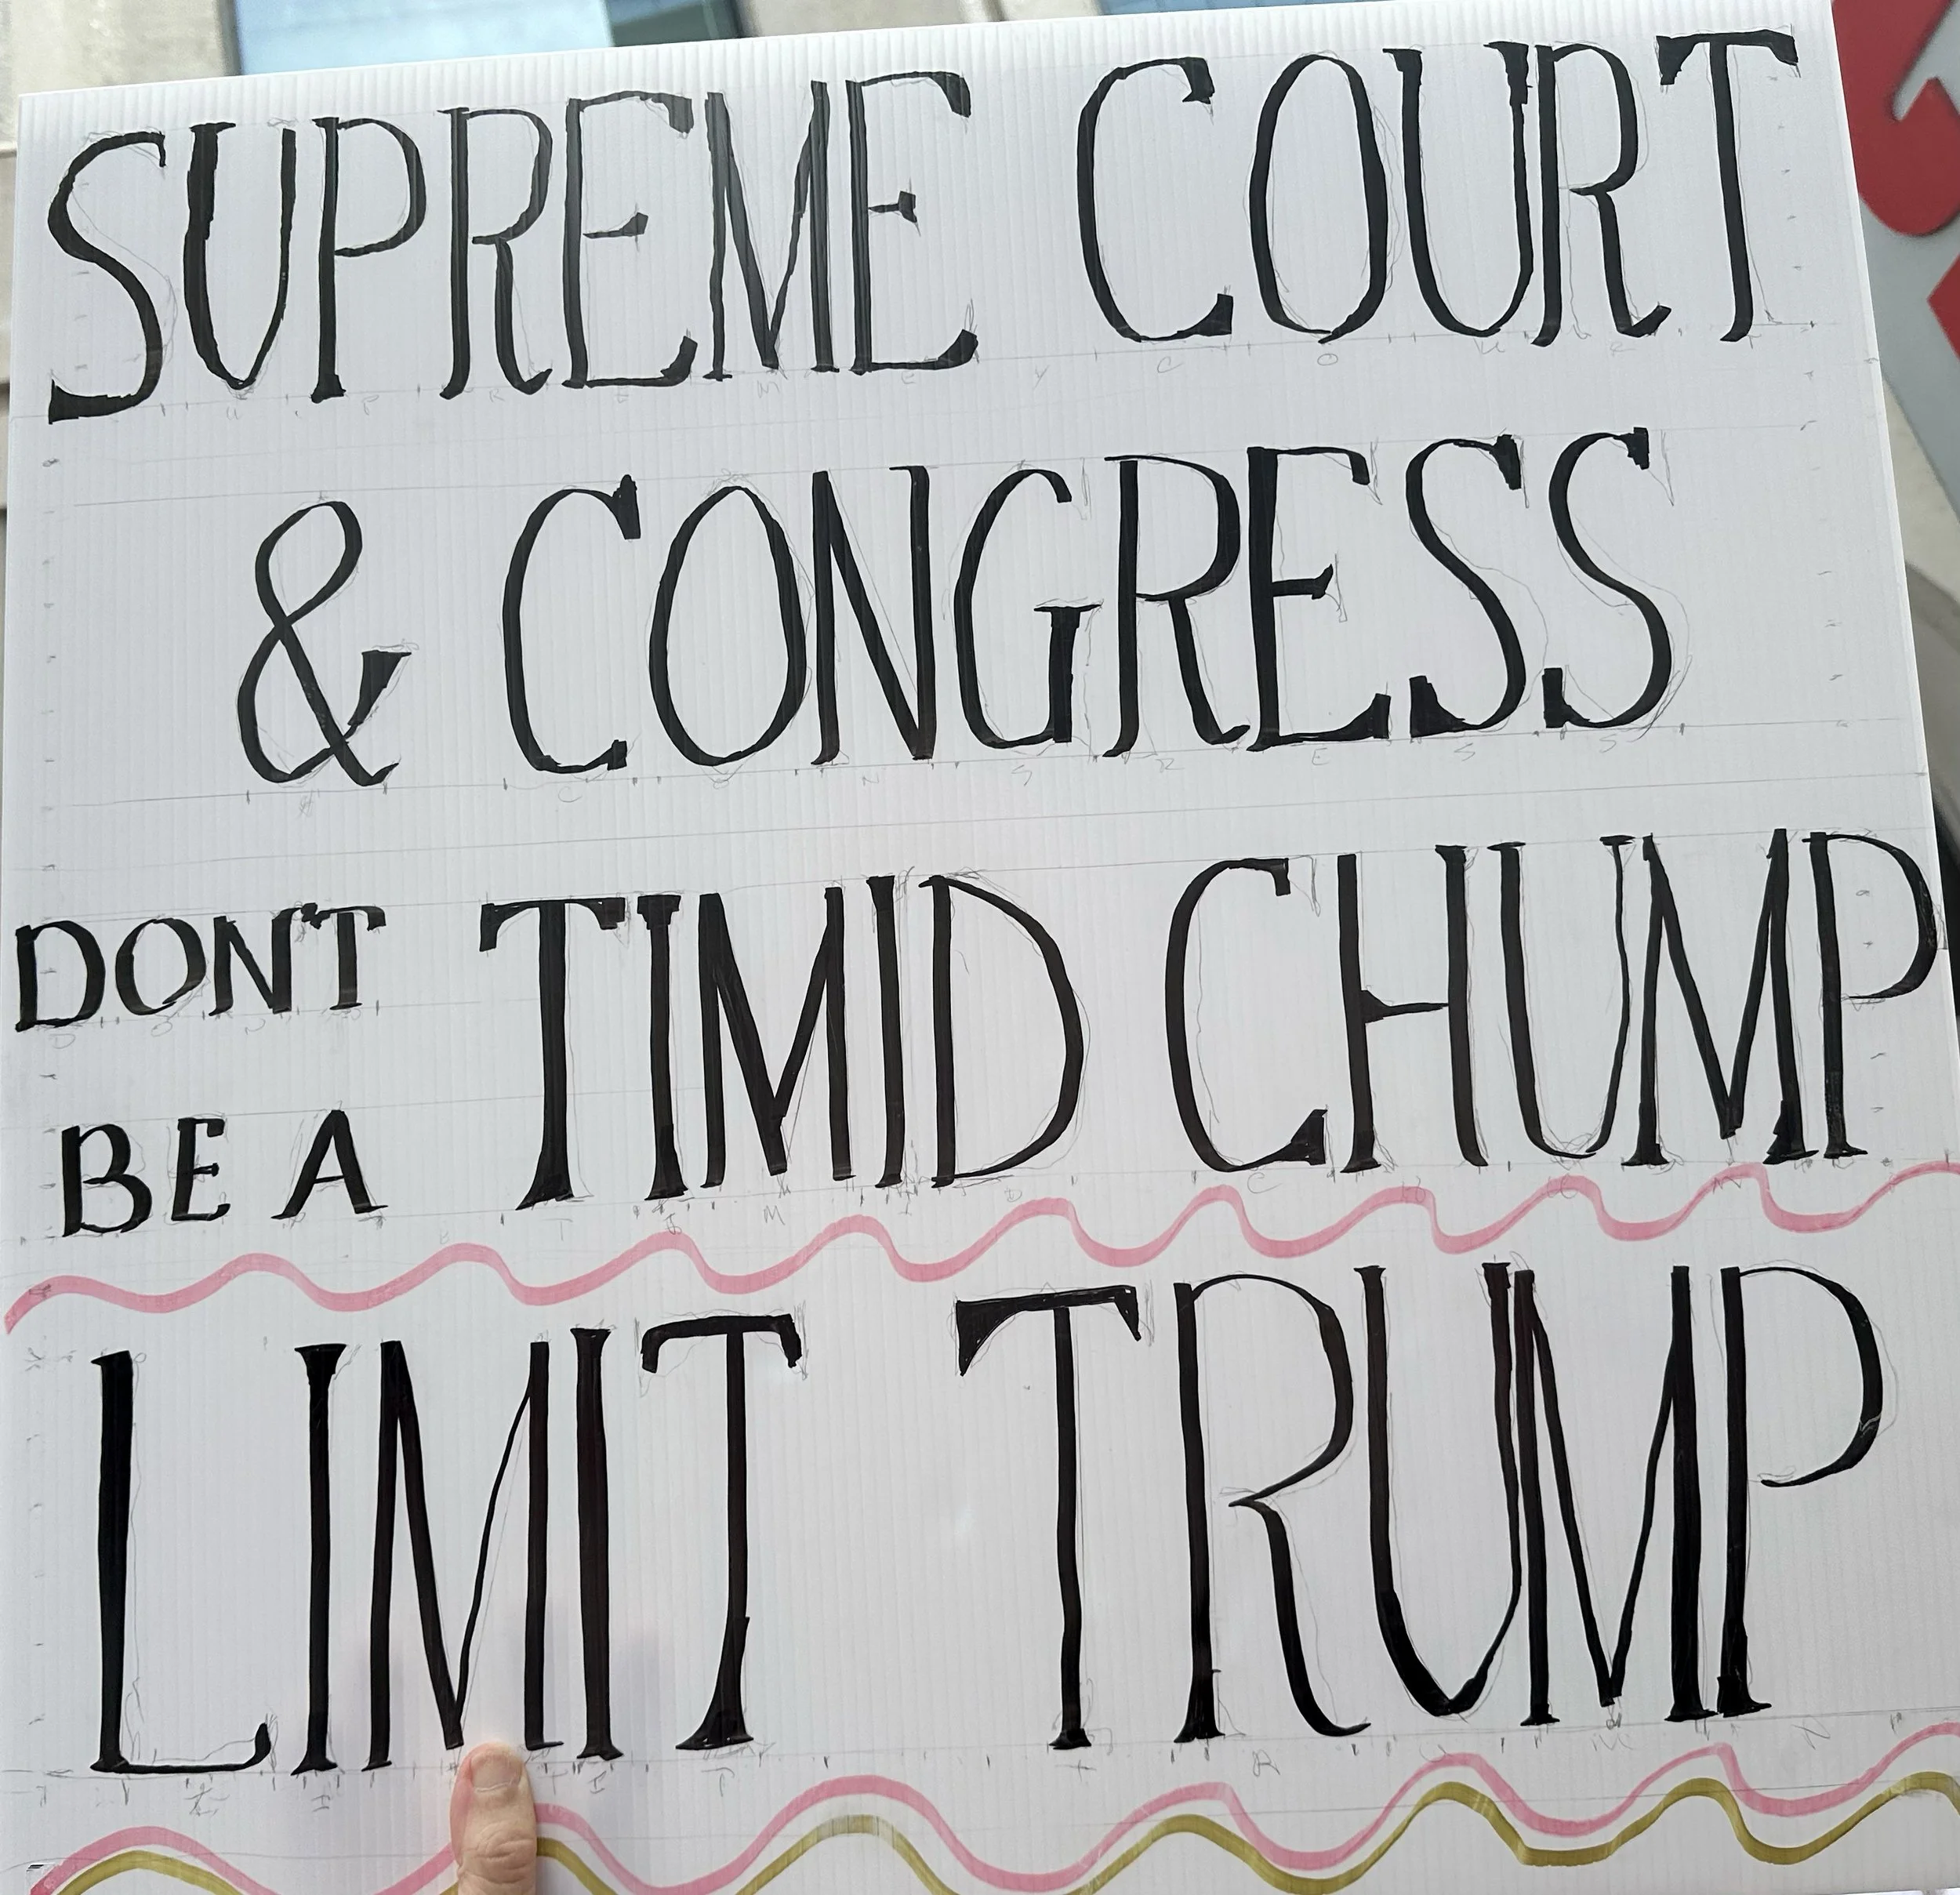 SUPREME COURT
& CONGRESS
DON'T
BE A
TIMID CHUMP
LIMIT TRUMP